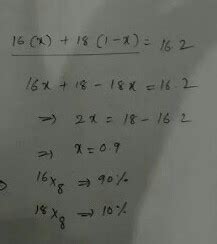 16(x) + 18(1-x) = 16.2
16x + 18 - 18x = 16.2
⇒ 2x = 18 - 16.2
⇒ x = 0.9
16X8 ⇒ 90%
18X8 ⇒ 10%